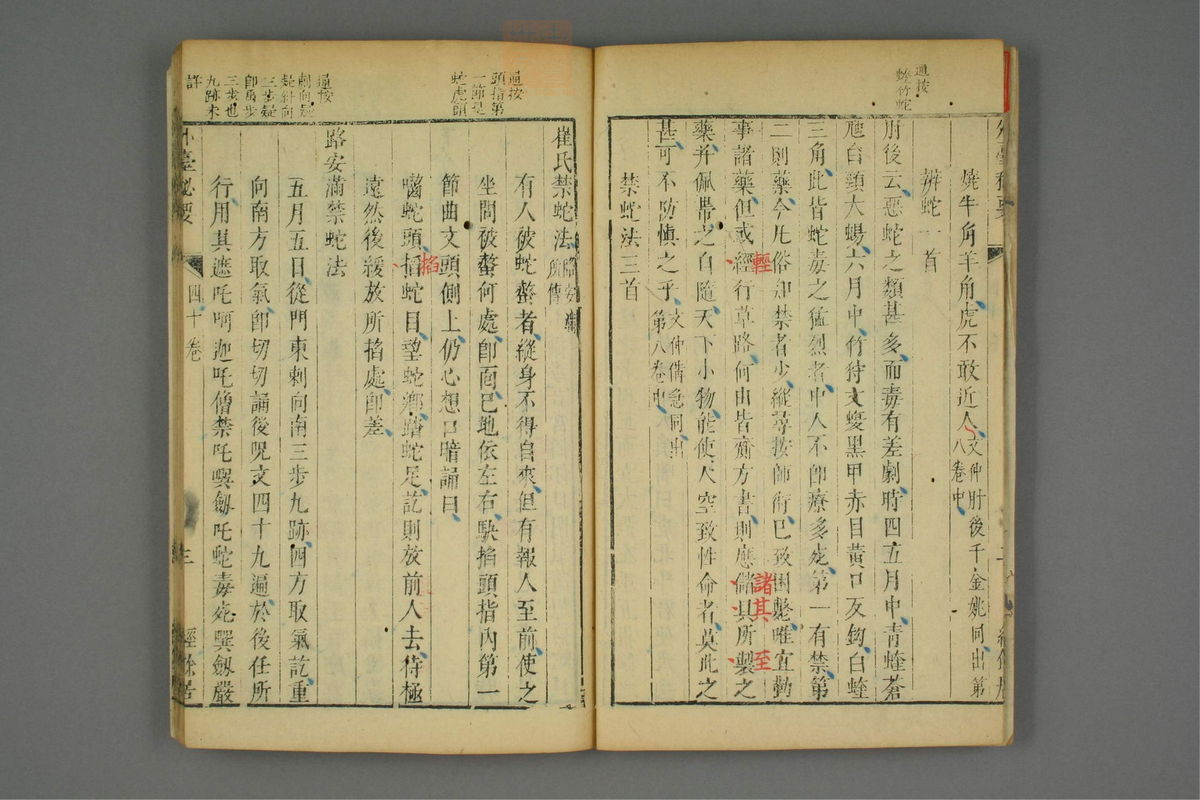 按
蝰竹蛇
燒牛角羊角虎不敢近人文仲肘後千金姚同出第八卷中
辨蛇一首
肘後云惡蛇之類甚多而毒有差劇時四五月中青蝰蒼
虺白頸大蜴六月中竹狩文蝮黑甲赤目黃口反鉤白蝰
三角此皆蛇毒之猛烈者中人不即療多死第一有禁第
二則藥今凡俗知禁者少縱尋按師術已致困斃唯宜勤
事諸藥但或經行草路何由皆齎方書則應儲具所製之
輕
諸其
至
藥并佩帶之自隨天下小物能使人空致性命者莫此之
甚可不防慎之乎文仲備急同出第八卷中
禁蛇法三首
按
頭指第
一節是
蛇虎頭
按
刺向疑
是斜向
三步疑
即禹步
三步也
九跡未
詳
崔氏禁蛇法路安滿所傳
有人被蛇螫者縱身不得自來但有報人至前使之
坐問被螫何處即面巳地依左右駃掐頭指內第一
節曲文頭側上仍心想口暗誦曰
囓蛇頭搯蛇目望蛇鄉蹹蛇足訖則放前人去待極
掐
遠然後緩放所掐處即差
路安滿禁蛇法
五月五日從門東刺向南三步九跡四方取氣訖重
向南方取氣即切切誦後呪文四十九遍於後任所
行用其遮吒啊迦吒僧禁吒㗲劔吒蛇毒死㗲劔嚴
外臺秘要
四十卷
三
經餘居